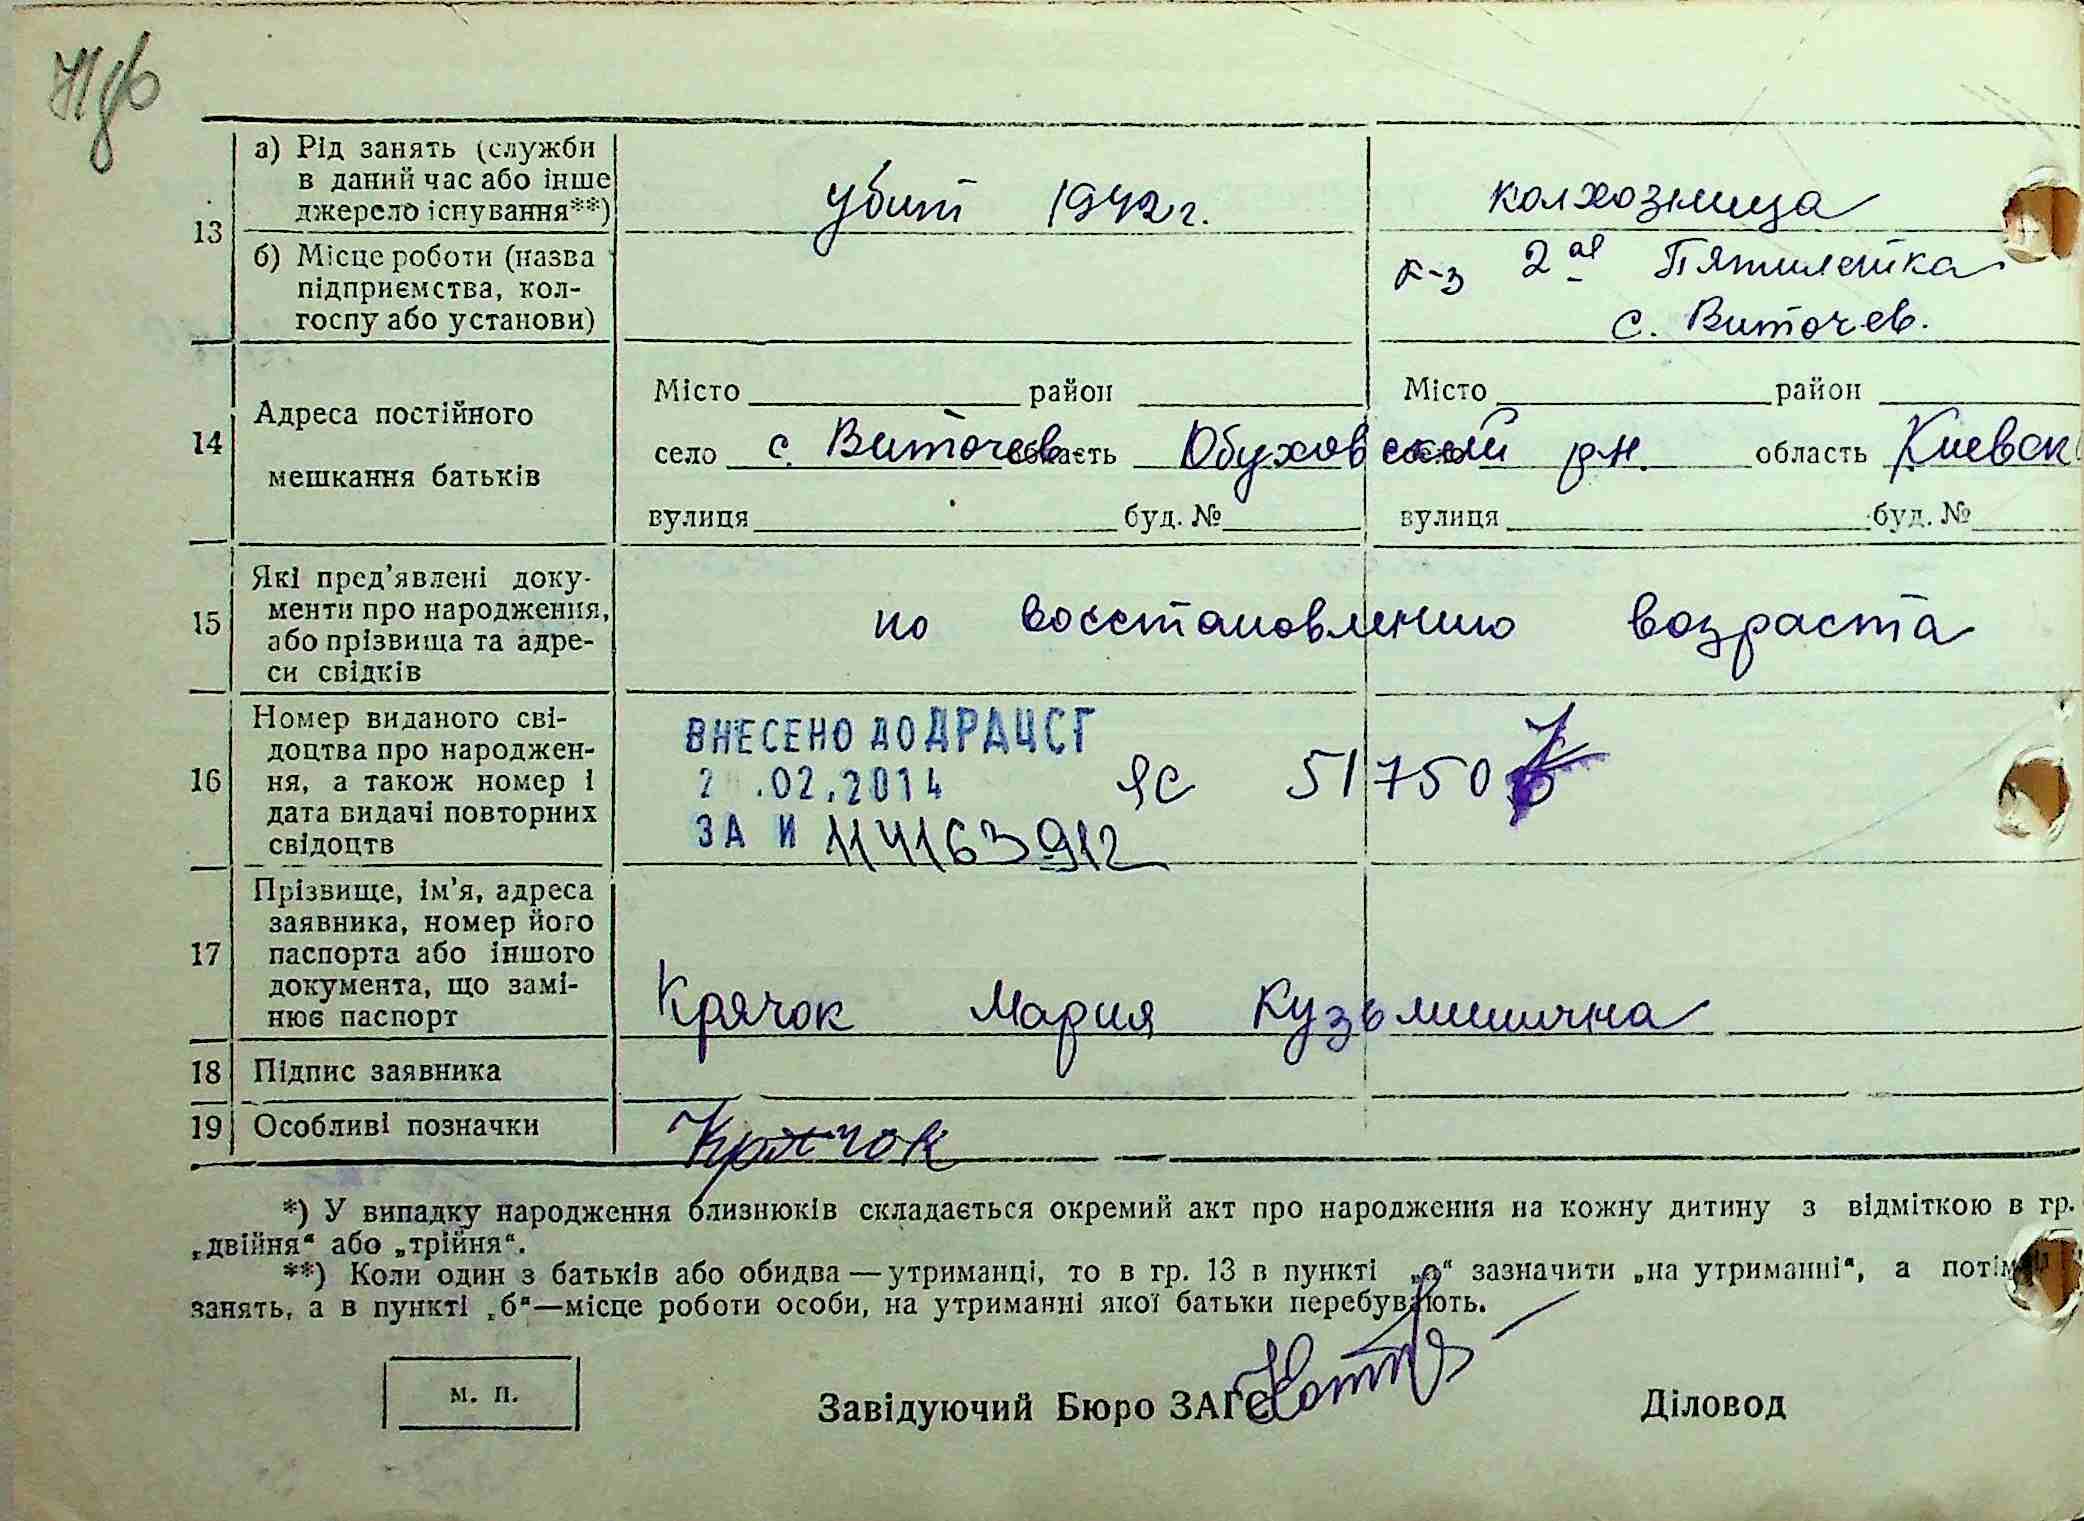 13
а) Рід занять (служби
в даний час або інше
джерело існування**)
убит 1942 г.
колхозница
б) Місце роботи (назва
підприємства, кол-
госпу або установи)
к-з 2ая Пятилетка
с. Виточев.
14
Адреса постійного
мешкання батьків
Місто район
село с. Виточев область Обуховский рн.
вулиця буд. №
Місто район
село область Киевск
вулиця буд. №
15
Які пред'явлені доку-
менти про народження,
або прізвища та адре-
си свідків
по восстановлению возраста
16
Номер виданого сві-
доцтва про народжен-
ня, а також номер і
дата видачі повторних
свідоцтв
ВНЕСЕНО ДО ДРАЦСГ
2 .02.2014
ЗА И 114163912
ЯС 517507
17
Прізвище, ім'я, адреса
заявника, номер його
паспорта або іншого
документа, що замі-
нює паспорт
Крячок Мария Кузьминична
18
Підпис заявника
19
Особливі позначки
Крячок
*) У випадку народження близнюків складається окремий акт про народження на кожну дитину з відміткою в гр.
„двійня“ або „трійня“.
**) Коли один з батьків або обидва — утриманці, то в гр. 13 в пункті „а“ зазначити „на утриманні“, а потім
занять, а в пункті „б“—місце роботи особи, на утриманні якої батьки перебувають.
м. п.
Завідуючий Бюро ЗАГС
Діловод